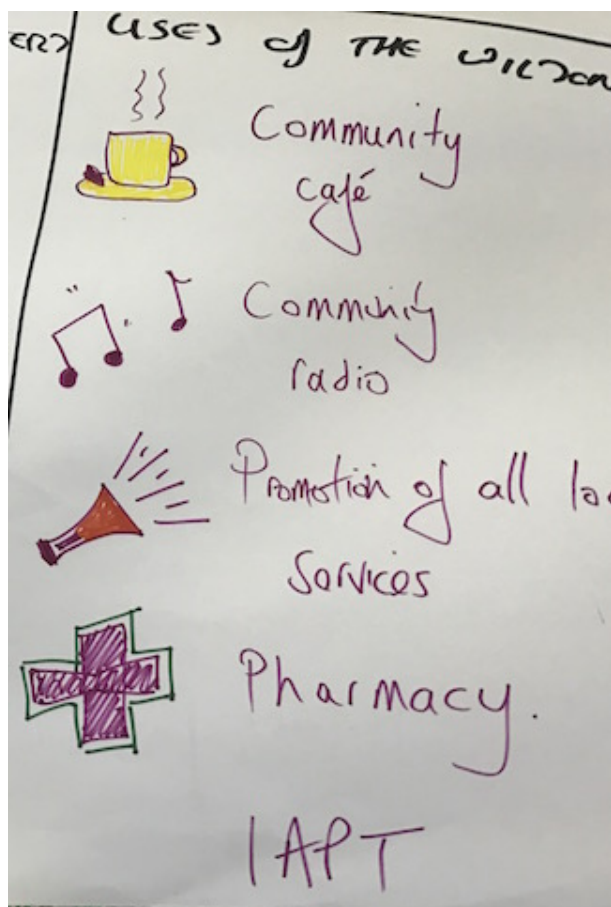 USES of THE WILSON
Community
café
Community
radio
Promotion of all loc
Services
Pharmacy.
IAPT